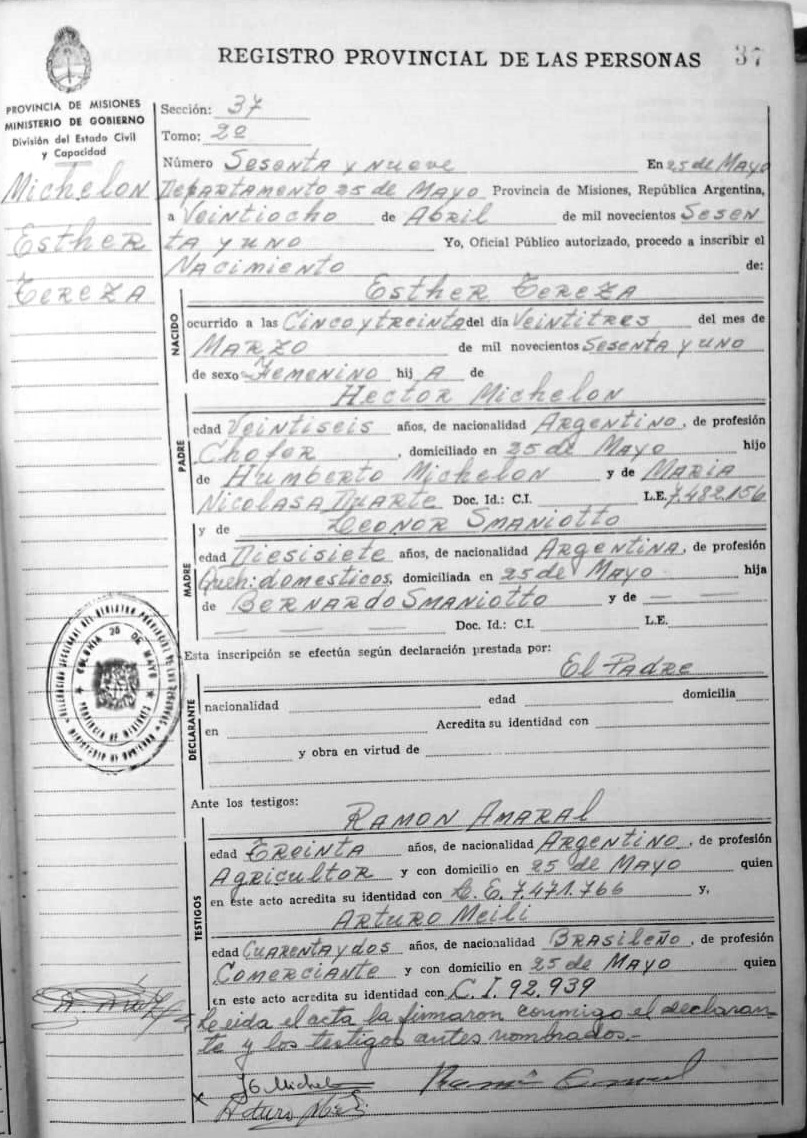 REGISTRO PROVINCIAL DE LAS PERSONAS 37
PROVINCIA DE MISIONES
MINISTERIO DE GOBIERNO
División del Estado Civil
y Capacidad
Michelon
Esther
Tereza
Sección: 37
Tomo: 2º
Número Sesenta y nueve En 25 de Mayo
Departamento 25 de Mayo Provincia de Misiones, República Argentina,
a Veintiocho de Abril de mil novecientos Sesen
ta y uno Yo, Oficial Público autorizado, procedo a inscribir el
Nacimiento de:
NACIDO
Esther Tereza
ocurrido a las Cinco y treinta del día Veintitres del mes de
Marzo de mil novecientos Sesenta y uno
de sexo Femenino hij A de
PADRE
Hector Michelon
edad Veintiseis años, de nacionalidad Argentino, de profesión
Chofer, domiciliado en 25 de Mayo hijo
de Humberto Michelon y de Maria
Nicolasa Duarte Doc. Id.: C.I. L.E. 7.482.156
MADRE
y de Leonor Smaniotto
edad Diesisiete años, de nacionalidad Argentina, de profesión
Queh: domesticos, domiciliada en 25 de Mayo hija
de Bernardo Smaniotto y de — —
— — — Doc. Id.: C.I. L.E.
Esta inscripción se efectúa según declaración prestada por:
El Padre
DECLARANTE
nacionalidad edad domicilia
en Acredita su identidad con
y obra en virtud de
Ante los testigos:
TESTIGOS
Ramon Amaral
edad Treinta años, de nacionalidad Argentino, de profesión
Agricultor y con domicilio en 25 de Mayo quien
en este acto acredita su identidad con L.E. 7.471.766 y,
Arturo Meili
edad Cuarenta y dos años, de nacionalidad Brasileño, de profesión
Comerciante y con domicilio en 25 de Mayo quien
en este acto acredita su identidad con C.I. 92.939
Leida el acta la firmaron conmigo el declaran-
te y los testigos antes nombrados.-
COLONIA 25 DE MAYO
PROVINCIA DE MISIONES
MINISTERIO DE GOBIERNO